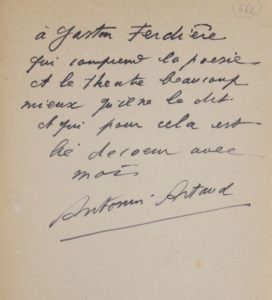 (662)
à Gaston Ferdière
qui comprend la poésie
et le theatre beaucoup
mieux qu'il ne le dit
et qui pour cela est
lié de coeur avec
moi
Antonin Artaud